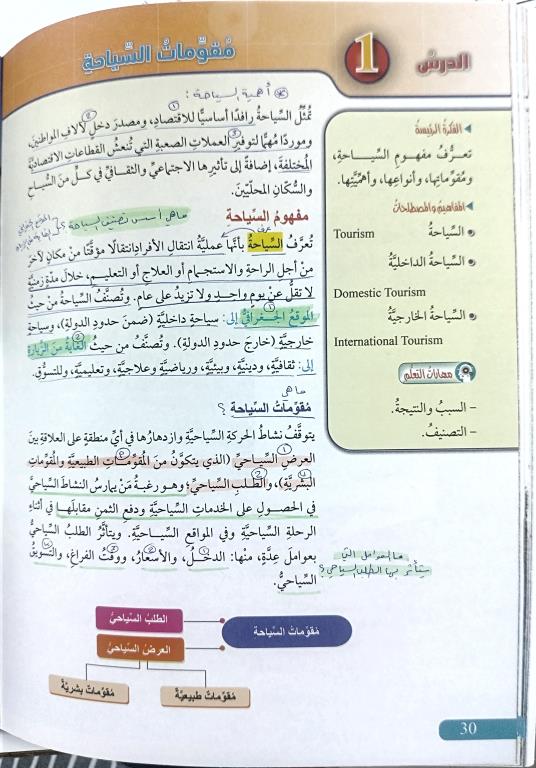 الدرس 1 مُقوِّماتُ السِّياحةِ
الفكرةُ الرئيسةُ
تعرُّف مفهومِ السِّياحةِ،
ومُقوِّماتِها، وأنواعِها، وأهمِّيَّتِها.
المفاهيمُ والمصطلحاتُ
السِّياحةُ
Tourism
السِّياحةُ الداخليَّةُ
Domestic Tourism
السِّياحةُ الخارجيَّةُ
International Tourism
مهاراتُ التعلُّمِ
– السببُ والنتيجةُ.
– التصنيفُ.
أهمية السياحة :
تُمثِّلُ السِّياحةُ رافدًا أساسيًّا للاقتصادِ، ومصدرَ دخلٍ لآلافِ المواطنينَ،
وموردًا مُهِمًّا لتوفيرِ العملاتِ الصعبةِ التي تُنعشُ القطاعاتِ الاقتصاديَّةَ
المُختلفةَ، إضافةً إلى تأثيرِها الاجتماعيِّ والثقافيِّ في كلٍّ منَ السُّيّاحِ
والسُّكّانِ المحلّيّينَ.
ما هي أسس تصنيف السياحة ؟
مفهومُ السِّياحةِ
عرف
تُعرَّفُ السِّياحةُ بأنَّها عمليَّةُ انتقالِ الأفرادِ انتقالًا مؤقَّتًا من مكانٍ لآخرَ
مِنْ أجلِ الراحةِ والاستجمامِ أو العلاجِ أو التعليمِ، خلالَ مدّةٍ زمنيَّةٍ
لا تقلُّ عنْ يومٍ واحدٍ ولا تزيدُ على عامٍ. وتُصنَّفُ السِّياحةُ منْ حيثُ
الموقعُ الجغرافيُّ إلى: سياحةٍ داخليَّةٍ (ضمنَ حدودِ الدولةِ)، وسياحةٍ
خارجيَّةٍ (خارجَ حدودِ الدولةِ). وتُصنَّفُ من حيثُ الغايةُ منَ الزيارةِ
إلى: ثقافيَّةٍ، ودينيَّةٍ، وبيئيَّةٍ، ورياضيَّةٍ وعلاجيَّةٍ، وتعليميَّةٍ، وللتسوُّقِ.
ما هي
مُقوِّماتُ السِّياحةِ ؟
يتوقَّفُ نشاطُ الحركةِ السياحيَّةِ وازدهارُها في أيِّ منطقةٍ على العلاقةِ بينَ
العرضِ السياحيِّ (الذي يتكوَّنُ منَ المُقوِّماتِ الطبيعيَّةِ والمُقوِّماتِ
البشريَّةِ)، والطلبِ السياحيِّ؛ وهو رغبةُ مَنْ يمارسُ النشاطَ السياحيَّ
في الحصولِ على الخدماتِ السياحيَّةِ ودفعِ الثمنِ مقابلَها في أثناءِ
الرحلةِ السياحيَّةِ وفي المواقعِ السياحيَّةِ. ويتأثَّرُ الطلبُ السياحيُّ
بعواملَ عدَّةٍ، منْها: الدخلُ، والأسعارُ، ووقتُ الفراغِ، والتسويقُ
السياحيُّ.
ما العوامل التي
يتأثر بها الطلب السياحي ؟
مُقوِّماتُ السِّياحة
الطلبُ السياحيُّ
العرضُ السياحيُّ
مُقوِّماتٌ طبيعيَّةٌ
مُقوِّماتٌ بشريَّةٌ
30